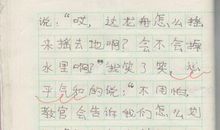 说：“哎，这龙舟怎么摇
来摇去地啊？会不会掉
水里啊？”我笑了笑，心
平气和的说：“不用怕，
教官会告诉我们怎么划